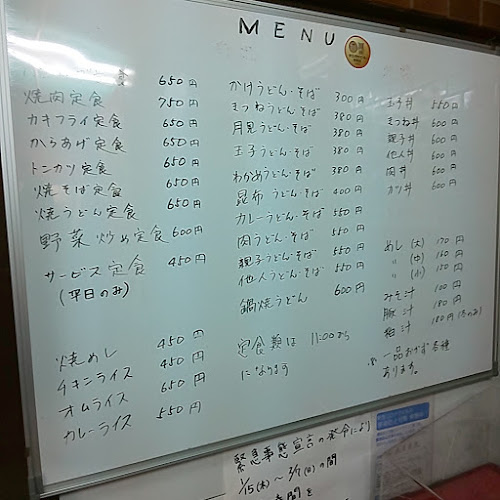 MENU
定食 650円
焼肉定食 750円
カキフライ定食 650円
からあげ定食 650円
トンカツ定食 650円
焼そば定食 650円
焼うどん定食 650円
野菜炒め定食 600円
サービス定食 450円
(平日のみ)
焼めし 450円
チキンライス 450円
オムライス 650円
カレーライス 550円
かけうどん・そば 300円
きつねうどん・そば 380円
月見うどん・そば 380円
玉子うどん・そば 380円
わかめうどん・そば 380円
昆布うどん・そば 400円
カレーうどん・そば 550円
肉うどん・そば 550円
親子うどん・そば 550円
他人うどん・そば 550円
鍋焼うどん 600円
定食類は 11:00から
になります
玉子丼 550円
きつね丼 600円
親子丼 600円
他人丼 600円
肉丼 600円
カツ丼 600円
めし (大) 170円
〃 (中) 160円
〃 (小) 150円
みそ汁 100円
豚汁 180円
粕汁 180円(冬のみ)
※ 一品おかず各種
あります。
緊急事態宣言の発令により
1/15(木)〜2/7(日)の間